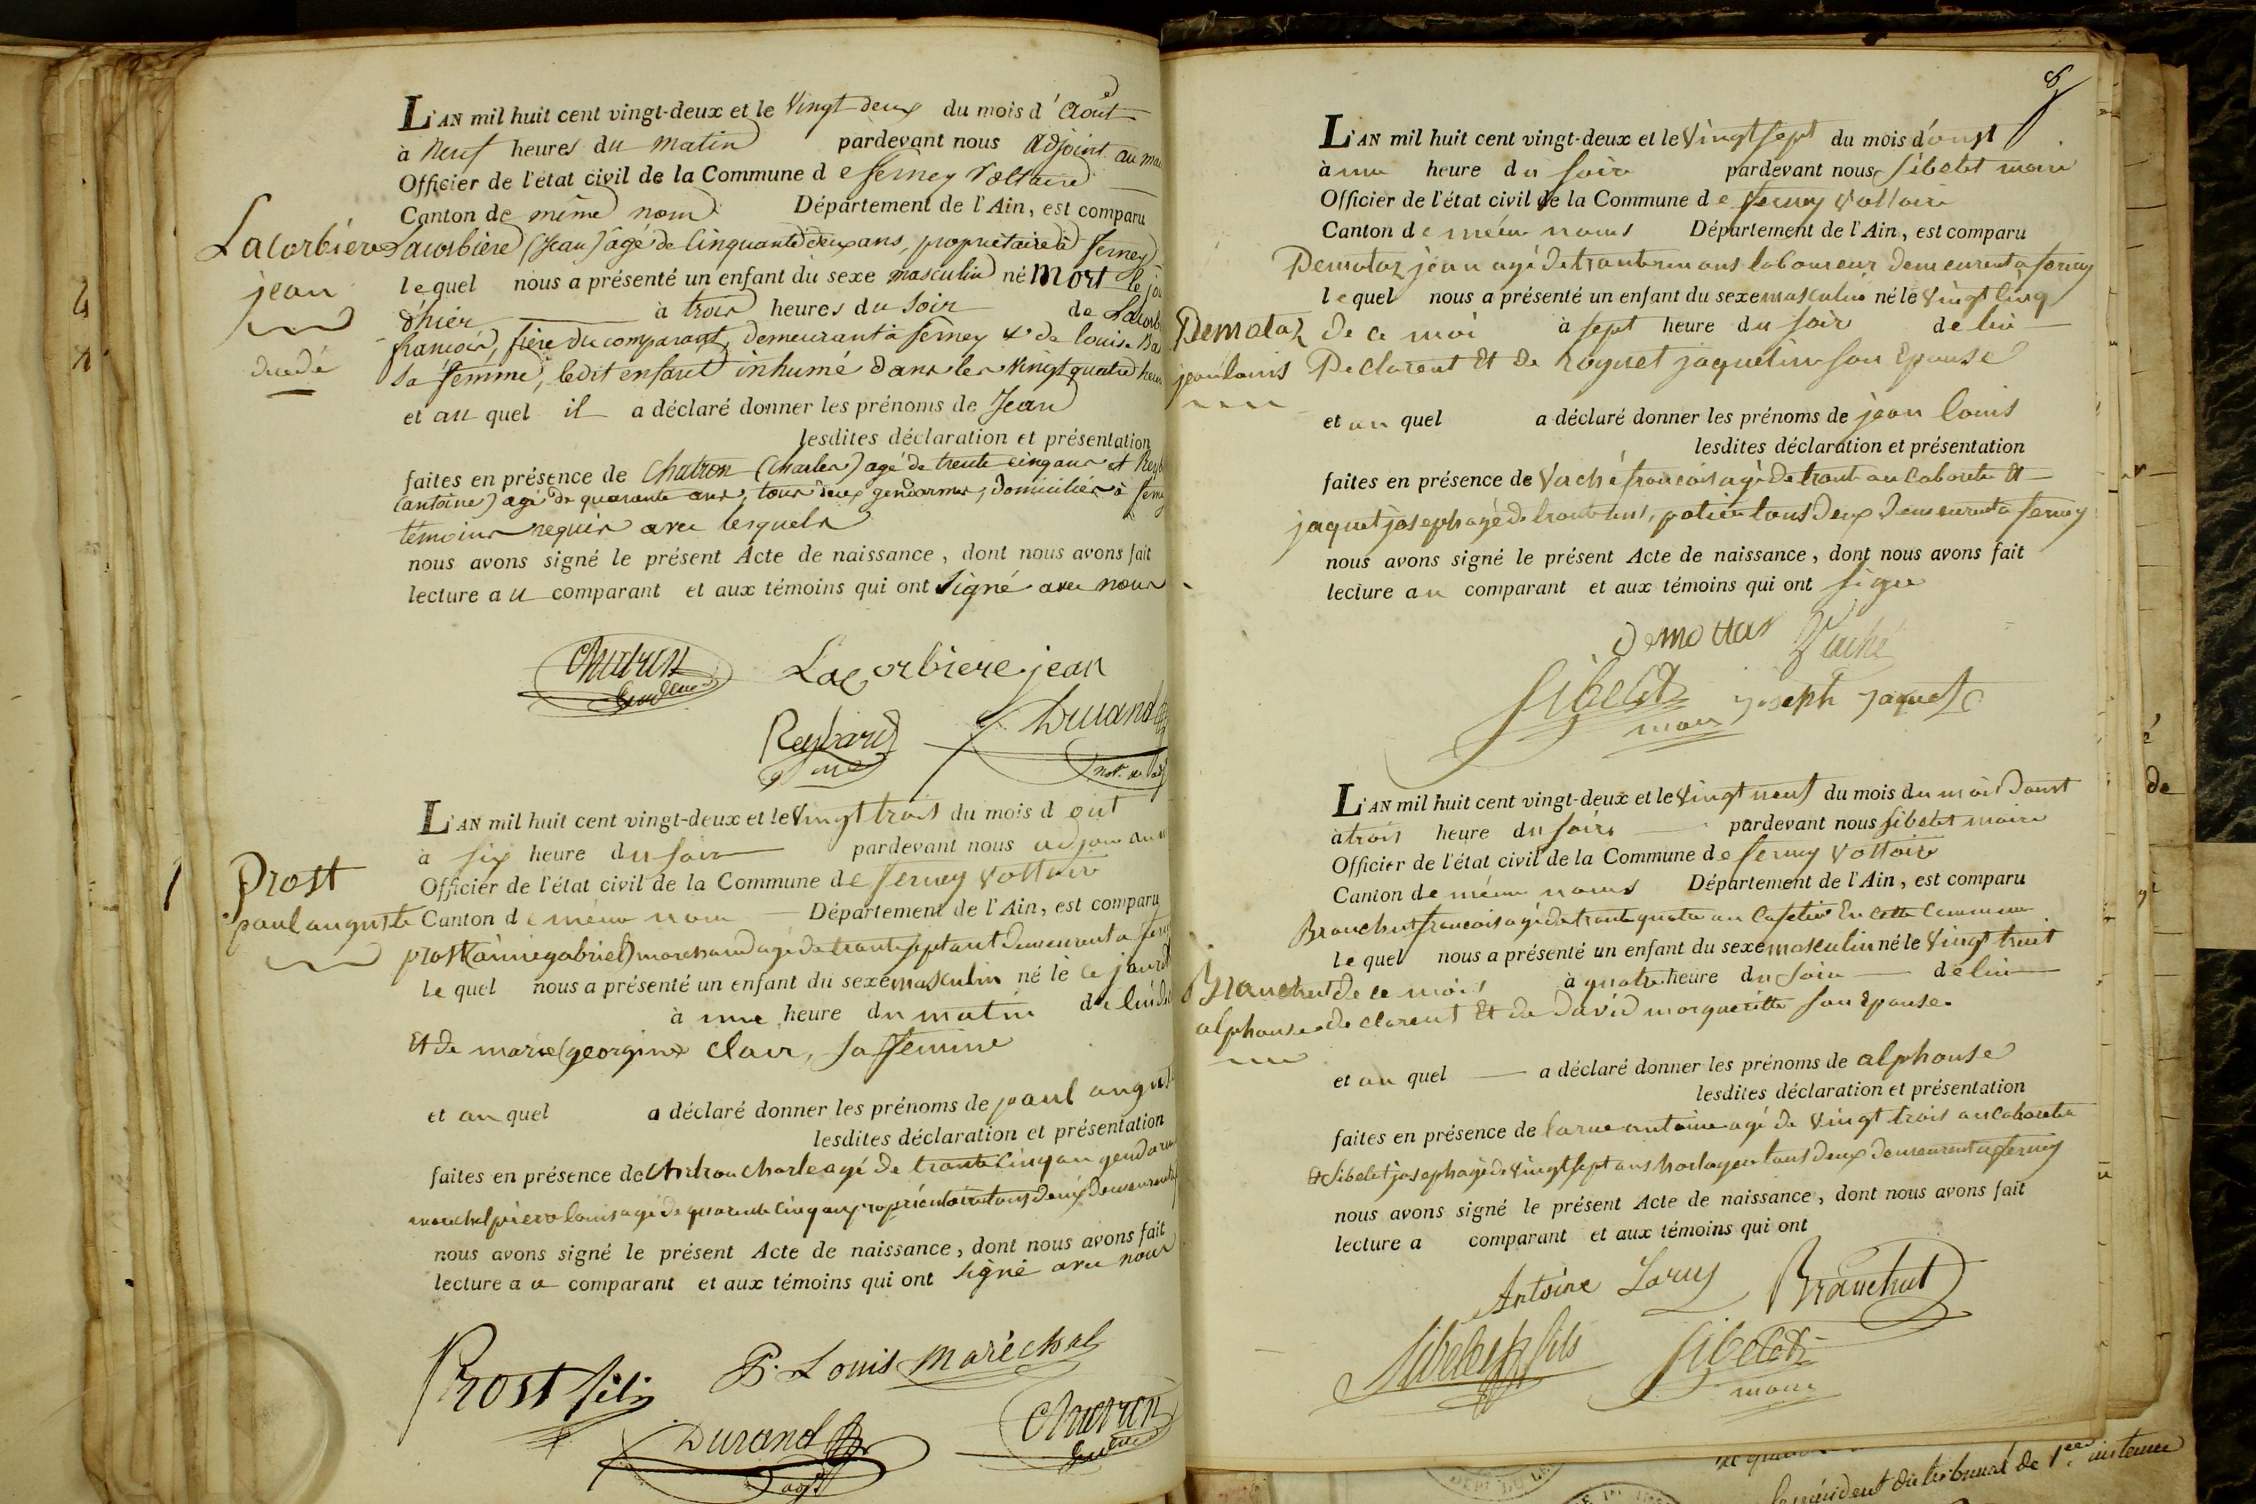 L'AN mil huit cent vingt-deux et le Vingt-deux du mois d'Août
à Neuf heures du matin pardevant nous adjoint au
Officier de l'état civil de la Commune de ferney Voltaire
Canton de même nom Département de l'Ain, est comparu
Lacorbière Lacorbiere (Jean) âgé de Cinquante deux ans, propriétaire à ferney
jean lequel nous a présenté un enfant du sexe masculin né Mort le
d'hier à trois heures du Soir de
décédé françois, frère du comparant, demeurant à ferney & de louise
Sa femme, ledit enfant inhumé dans les Vingt quatre
et au quel il a déclaré donner les prénoms de Jean
lesdites déclaration et présentation
faites en présence de Chatron (Charles) agé de trente cinq ans et
(antoine) agé de quarante ans, tous deux gendarmes, domiciliés à
témoins requis avec lesquels
nous avons signé le présent Acte de naissance, dont nous avons fait
lecture au comparant et aux témoins qui ont Signé avec nous
Chatron
Gendarme
Lacorbiere jean
Reybard
Durand
L'AN mil huit cent vingt-deux et le Vingt trois du mois d out
à six heure du soir pardevant nous
Officier de l'état civil de la Commune de ferney Voltaire
Prost
paul auguste Canton de même nom Département de l'Ain, est comparu
prost marchand agé de trante sept ant demeurent a
le quel nous a présenté un enfant du sexe masculin né le ce jourd
à une heure du matin de lui
Et de marie (georgine) Clair, sa femme
et au quel a déclaré donner les prénoms de paul
lesdites déclaration et présentation
faites en présence de Chatron Charle agé de trante Cinq an
marechal pierre louis agé de quarente Cinq an propriétaire tous deux
nous avons signé le présent Acte de naissance, dont nous avons fait
lecture a u comparant et aux témoins qui ont signé avec nous
Prost fils
P. Louis Maréchal
Durand
Chatron
8
L'AN mil huit cent vingt-deux et le Vingt sept du mois d'oust
à une heure du soir pardevant nous Sibelet maire
Officier de l'état civil de la Commune de ferney Voltaire
Canton de même noms Département de l'Ain, est comparu
Demotaz jean agé de laboureur demeurent a ferney
lequel nous a présenté un enfant du sexe masculin né le Vingt Cinq
Demotaz de ce moi à sept heure du soir de lui
jean louis Declarent Et de roquet jaqueline son Epouse
et au quel a déclaré donner les prénoms de jean louis
lesdites déclaration et présentation
faites en présence de Vaché francois agé de trante an Et
jaquet joseph agé de potier tous deux demeurent a ferney
nous avons signé le présent Acte de naissance, dont nous avons fait
lecture au comparant et aux témoins qui ont signe
demottaz
Vaché
Sibelet
maire
joseph jaquet
L'AN mil huit cent vingt-deux et le Vingt neuf du mois du mois Doust
à trois heure du soire pardevant nous Sibelet maire
Officier de l'état civil de la Commune de ferney Voltaire
Canton de même noms Département de l'Ain, est comparu
Branchut francois agé de trante quatre an Cafetier En cette Commune
le quel nous a présenté un enfant du sexe masculin né le Vingt
Branchut de ce mois à quatre heure du soire de lui
alphonse declarent Et de David marguerite son Epouse
et au quel a déclaré donner les prénoms de alphonse
lesdites déclaration et présentation
faites en présence de larue antoine agé de Vingt trois an
Et Sibelet joseph agé de Vingt sept ans horloger tous deux demeurent a ferney
nous avons signé le présent Acte de naissance, dont nous avons fait
lecture a comparant et aux témoins qui ont
Antoine Larue
Branchut
Sibelet fils
Sibelet
maire
du tribunal de 1ere instance